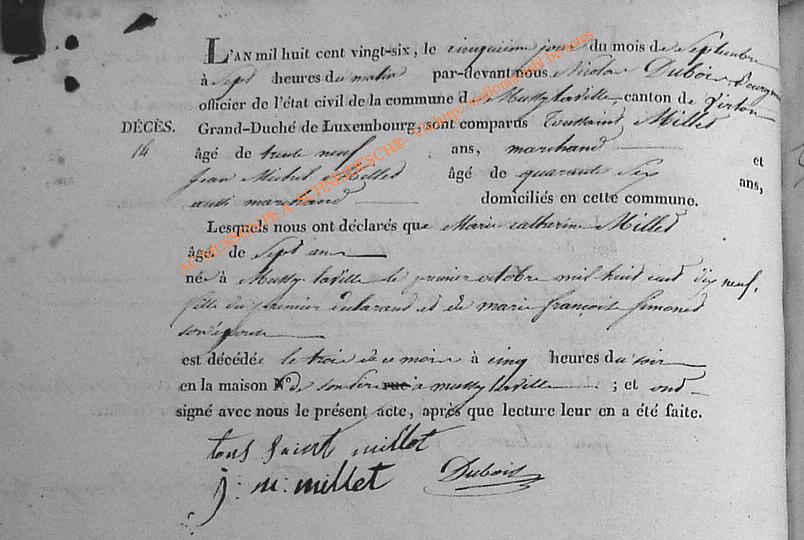 L'AN mil huit cent vingt-six, le cinquieme jour du mois de Septembre
à Sept heures du matin par-devant nous Nicolas Dubois, Bourgm
officier de l'état civil de la commune de Mussy laville, canton de Virton
DÉCÈS. Grand-Duché de Luxembourg, sont comparus Toussaint Millet
14 âgé de trente neuf ans, marchand et
Jean Michel Millet âgé de quarante Six ans,
aussi marchand domiciliés en cette commune.
Lesquels nous ont déclarés que Marie catherine Millet
âgé de Sept ans
né à Mussy laville le premier octobre mil huit cent dix neuf,
fille du premier déclarant et de marie françoise Simonet
son épouse
est décédée le trois de ce mois à cinq heures du soir
en la maison N° de son père rue a mussy laville ; et ont
signé avec nous le présent acte, après que lecture leur en a été faite.
tous saint millet
j. m. millet Dubois